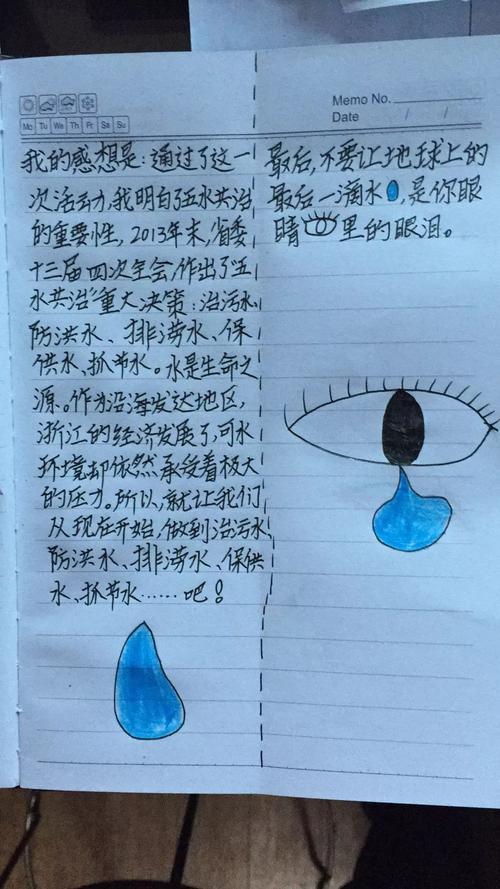 Memo No.
Mo Tu We Th Fr Sa Su
Date / /
我的感想是:通过了这一
次活动,我明白了五水共治
的重要性,2013年末,省委
十三届四次全会,作出了“五
水共治”重大决策:治污水、
防洪水、排涝水、保
供水、抓节水。水是生命之
源。作为沿海发达地区,
浙江的经济发展了,可水
环境却依然承受着极大
的压力。所以,就让我们
从现在开始,做到治污水、
防洪水、排涝水、保供
水、抓节水……吧!
最后,不要让地球上的
最后一滴水,是你眼
睛里的眼泪。